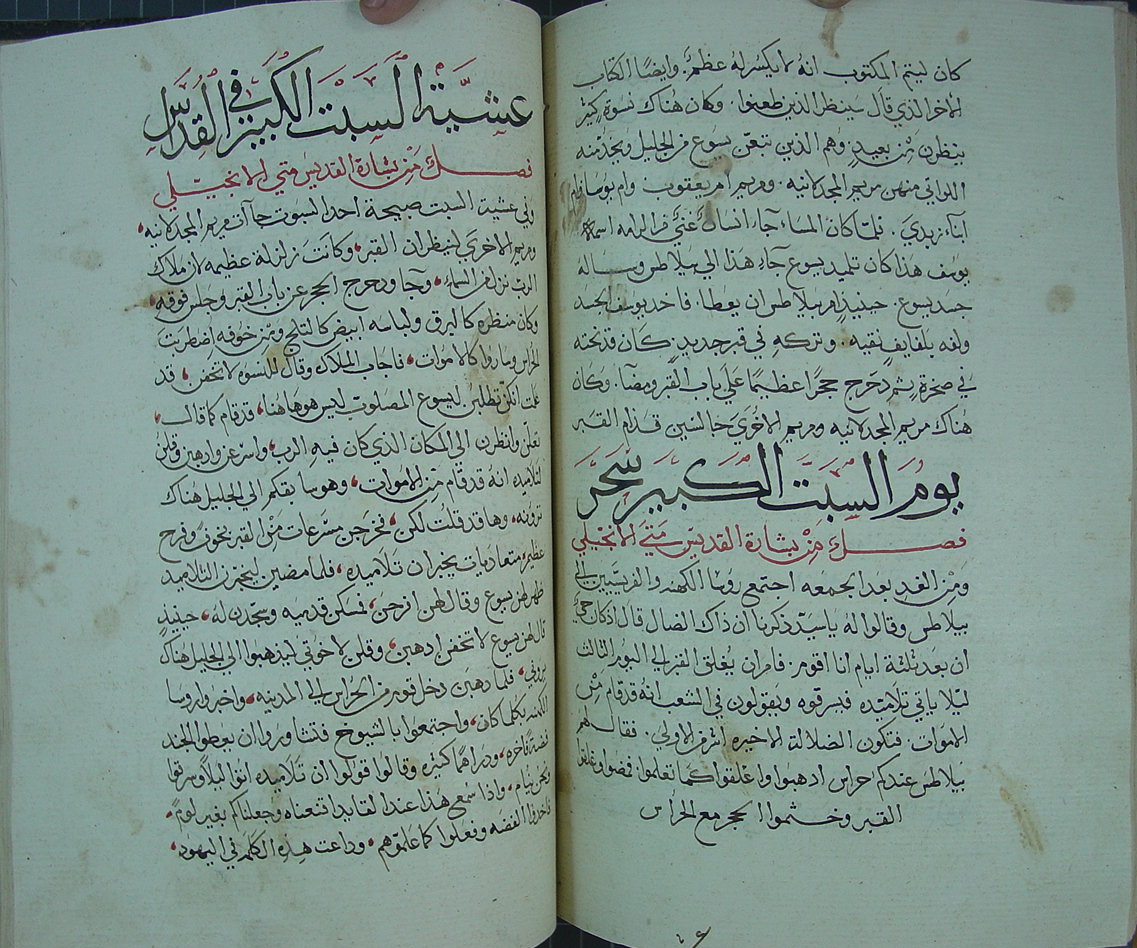 كان ليتم المكتوب انه لا يكسر له عظم. وايضا الكتاب
الاخر الذي قال سينظر الذين طعنوا. وكان هناك نسوة كثير
ينظرن من بعيد. وهم الذين تبعن يسوع من الجليل ويخدمنه
اللواتي منهن مريم المجدلانيه. ومريم ام يعقوب وام يوسا وام
ابناء زبدي. فلما كان المساء جاء انسان غني من الرامه اسمه
يوسف هذا كان تلميد يسوع جاء هذا الي بيلاطس وساله
جسد يسوع. حينيذ امر بيلاطس ان يعطا. فاخد يوسف الجسد
ولفه بلفايف نقيه. وتركه في قبر جديد. كان قد نحته
في صخرة ثم دحرج حجرا عظيما علي باب القبر ومضا. وكان
هناك مريم المجدلانيه ومريم الاخري جالستين قدام القبر
يوم السبت الكبير سحر
فصل من بشارة القديس متي الانجيلي
ومن الغد بعد الجمعه اجتمع روسا الكهنه والفريسيين الي
بيلاطس وقالوا له ياسيد ذكرنا ان ذاك الضال قال اذ كان حي
ان بعد ثلثة ايام انا اقوم. فامر ان يغلق القبر الي اليوم الثالث
ليلا ياتي تلاميده فيسرقوه ويقولون في الشعب انه قد قام من
الاموات. فتكون الضلالة الاخيره اشر من الاولي. فقال لهم
بيلاطس عندكم حراس ادهبوا واغلقوا كما تعلموا فمضوا وغلقوا
القبر وختموا الحجر مع الحراس
عشية السبت الكبير في القداس
فصل من بشارة القديس متي الانجيلي
وفي عشية السبت صبيحة احد السبوت جاات مريم المجدلانيه
ومريم الاخري لينظران القبر، وكانت زلزلة عظيمه لان ملاك
الرب نزل من السماء، وجا ودحرج الحجر عن باب القبر وجلس فوقه
وكان منظره كالبرق ولباسه ابيض كالتلج ومن خوفه اضطربت
الحراس وصاروا كالاموات، فاجاب الملاك وقال للنسوه لا تخفن، قد
علمت انكن تطلبن ليسوع المصلوب ليس هو هاهنا، قد قام كما قال،
تعالن وانظرن الي المكان الذي كان فيه الرب، واسرعن وادهبن وقلن
لتلاميده انه قد قام من الاموات، وهوسا يقكم الي الجليل هناك
ترونه، وها قد قلت لكن، فخرجن مسرعات من القبر بخوف وفرح
عظيم متعاديات يخبران تلاميده، فلما مضين ليخبرن التلاميد
ظهر لهن يسوع وقال لهن افرحن، فمسكن قدميه وسجدن له، حينيد
قال لهن يسوع لا تخفن ادهبن، وقلن لاخوتي ليدهبوا الي الجليل هناك
يروني، فلما دهبن دخل قوم من الحراس الي المدينه، واخبروا روسا
الكهنه بكلما كان، واجتمعوا بالشيوخ فتشاوروا ان يعطوا الجند
فضة فاخره، ودراهما كثيره وقالوا قولوا ان تلاميده اتوا ليلا وسرقوا
ونحن نيام، واذا سمع هذا عند القايد اقنعناه وجعلناكم بغير لوم،
فاخدوا الفضه وفعلوا كما علموهم، وداعت هذه الكلمه في اليهود،